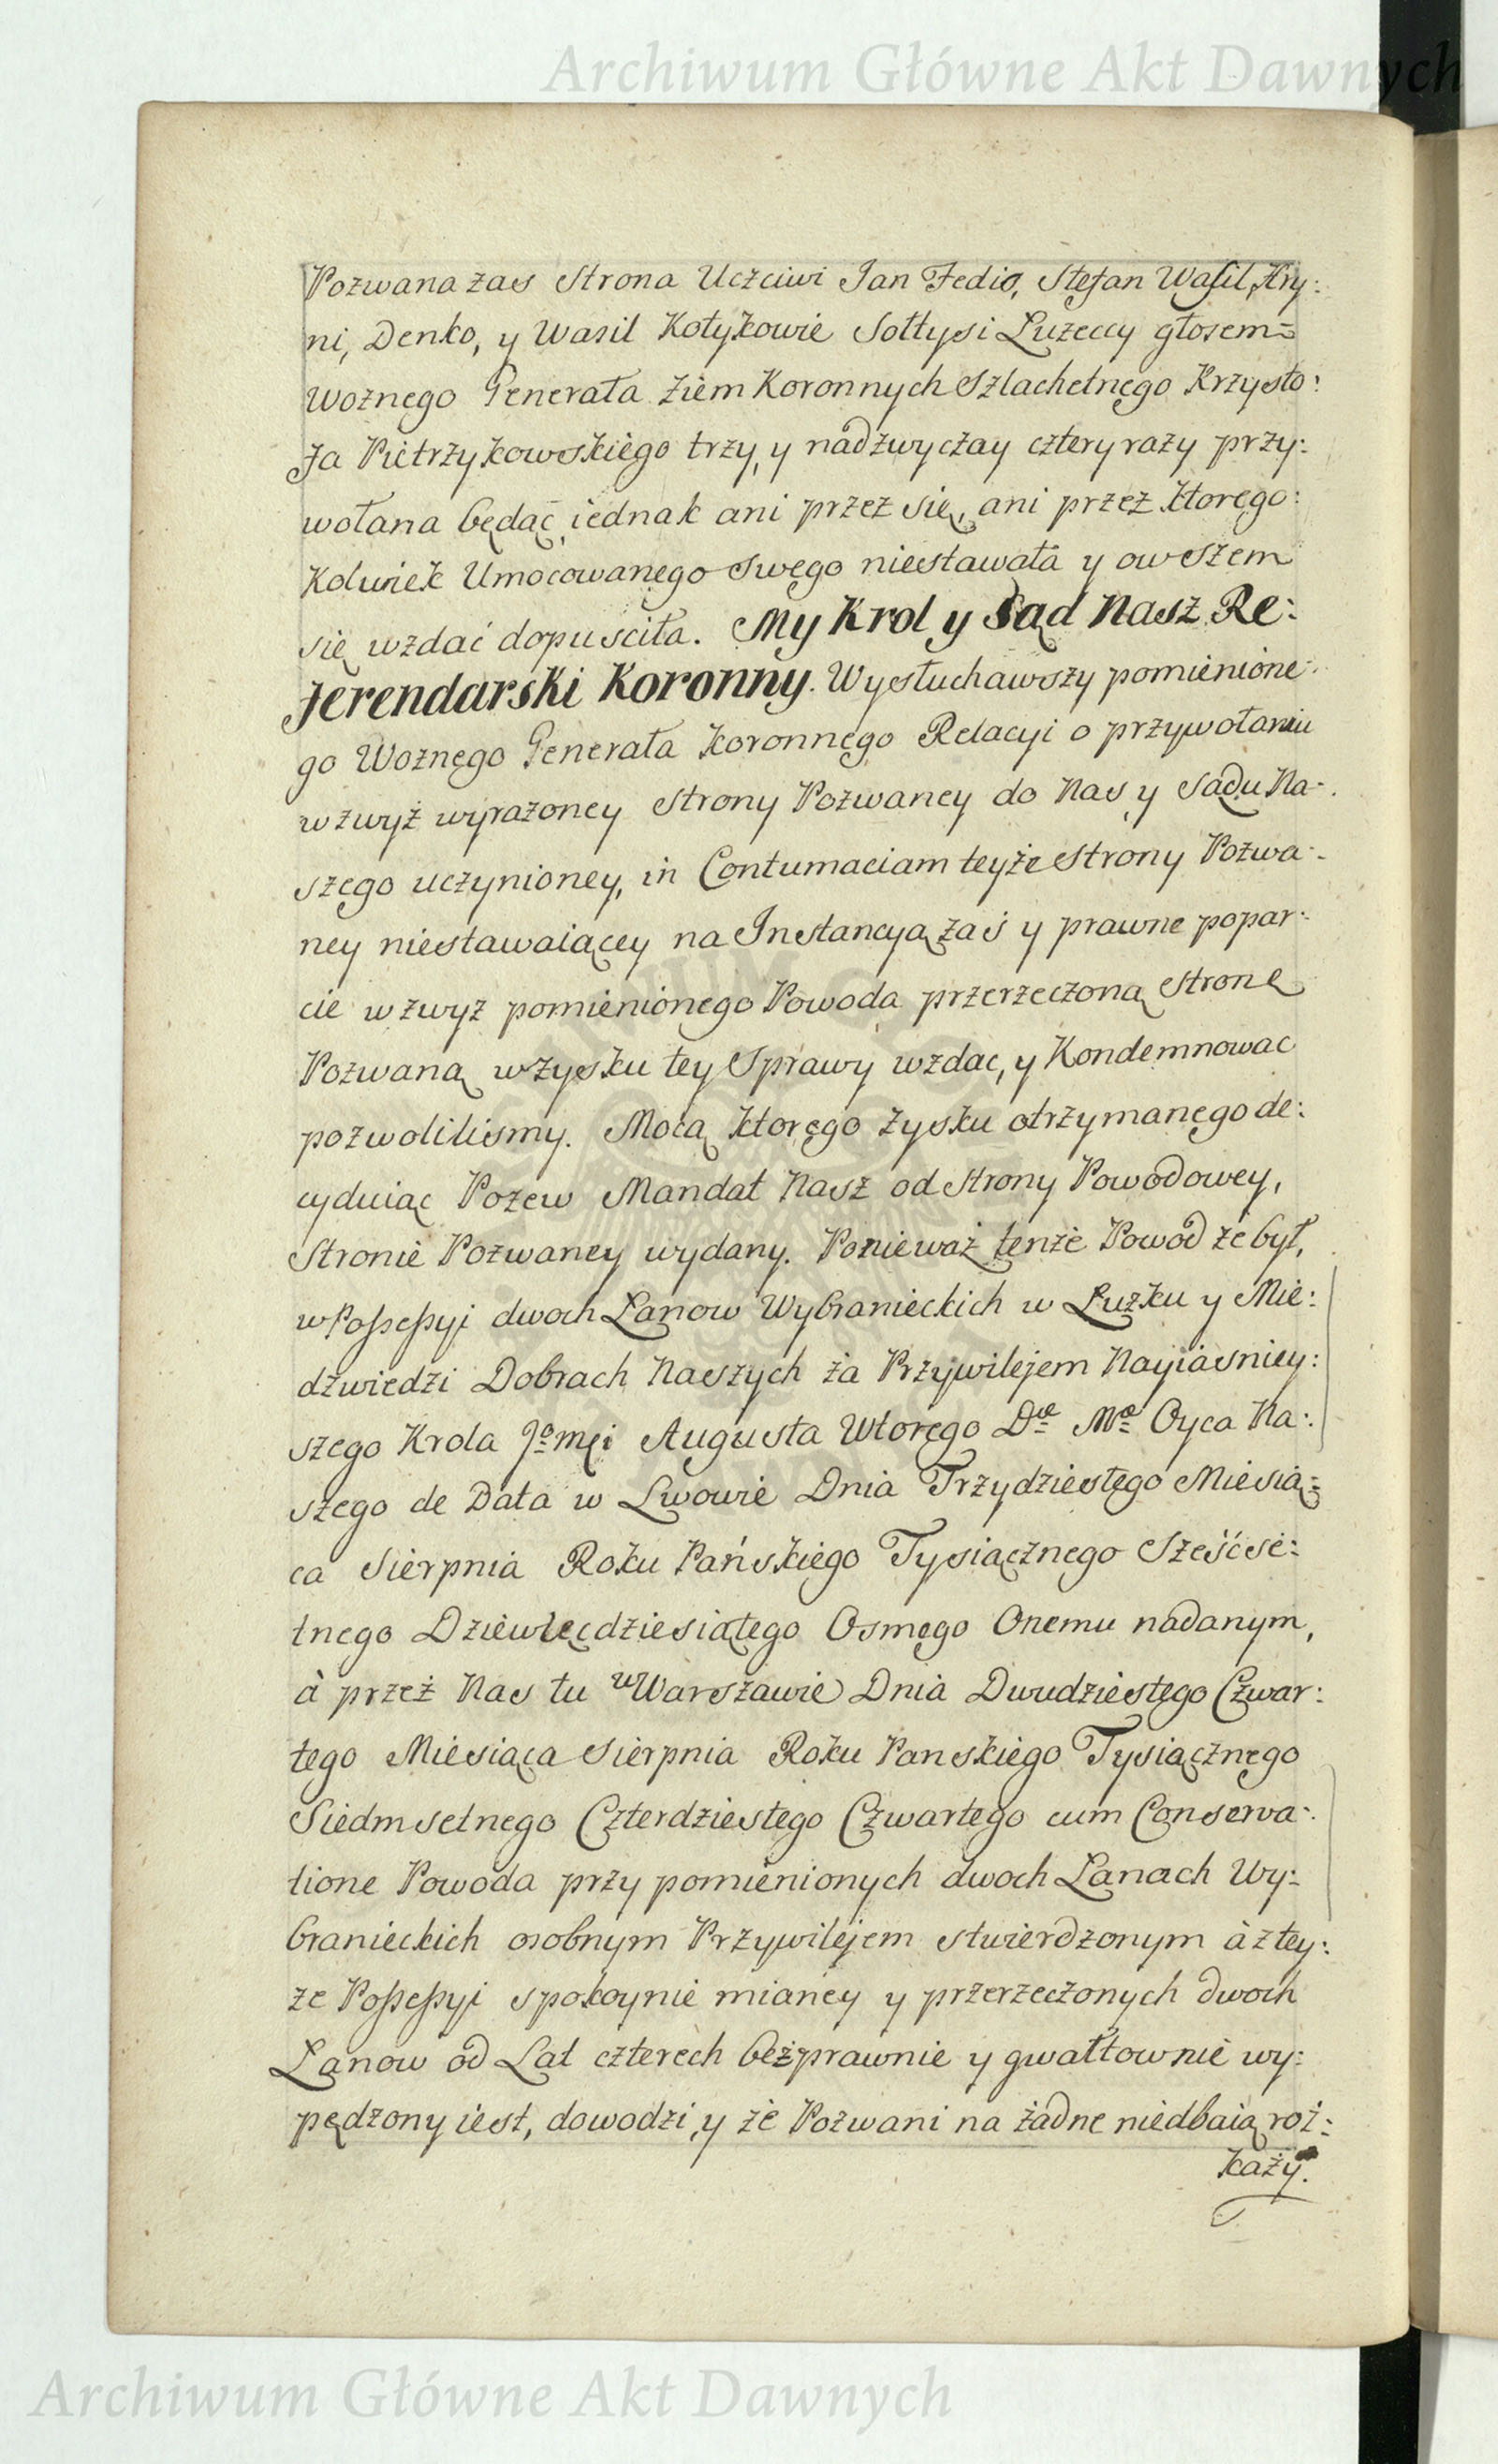 Archiwum Główne Akt Dawnych
Pozwana zas Strona Uczciwi Jan Fedio, Stefan Wasil, Hry:
ni, Denko, y Wasil Kotykowie Sołtysi Łuzeccy głosem=
Woznego Generała Ziem Koronnych Szlachetnęgo Krzysto:
fa Pietrzykowskięgo trzy, y nadzwyczay cztery razy przy:
wołana będąc iednak ani przez się, ani przez ktorego:
Kolwiek Umocowanego swego niestawała y owszem
się wzdać dopusciła. My Krol y Sąd Nasz Re:
ferendarski Koronny. Wysłuchawszy pomienione:
go Woznęgo Generała Koronnęgo Relacyi o przywołaniu
wzwyż wyrażoney Strony Pozwaney do Nas y Sądu Na:
szego uczynioney, in Contumaciam teyże Strony Pozwa:
ney niestawaiącey na Instancyą zaś y prawne popar:
cie wzwyz pomieniónego Powoda przerzeczoną Stronę
Pozwaną w zysku tey Sprawy wzdac, y Kondemnowac
pozwolilismy. Mocą ktoręgo zysku otrzymanego de:
cyduiąc Pozew Mandat Nasz od Strony Powodowey,
Stronie Pozwaney wydany. Ponieważ tenże Powod że był,
w Possessyi dwoch Łanow Wybranieckich w Łużku y Mie:
dzwiedzi Dobrach Naszych za Przywilejem Nayiasniey:
szego Krola Jomći Augusta Wtoręgo Dæ Mæ Oyca Na:
szego de Data w Lwowie Dnia Trzydziestęgo Miesią=
ca Sierpnia Roku Pańskięgo Tysiącznego Sześćse:
tnego Dziewięcdziesiątego Osmęgo Onemu nadanym,
à przeż Nas tu w Warszawie Dnia Dwudziestęgo Czwar:
tego Miesiąca Sierpnia Roku Panskiego Tysiącznęgo
Siedmsetnego Czterdziestego Czwartego cum Conserva:
tione Powoda przy pomienionych dwoch Łanach Wy:
branieckich osobnym Przywilejem stwierdzonym à z tey:
ze Possessyi spokoynie mianey y przerzeczonych dwoch
Łanow od Lat czterech bezprawnie y gwałtownie wy:
pędzony iest, dowodzi, y że Pozwani na żadne niedbaią roz:
kazy.
Archiwum Główne Akt Dawnych